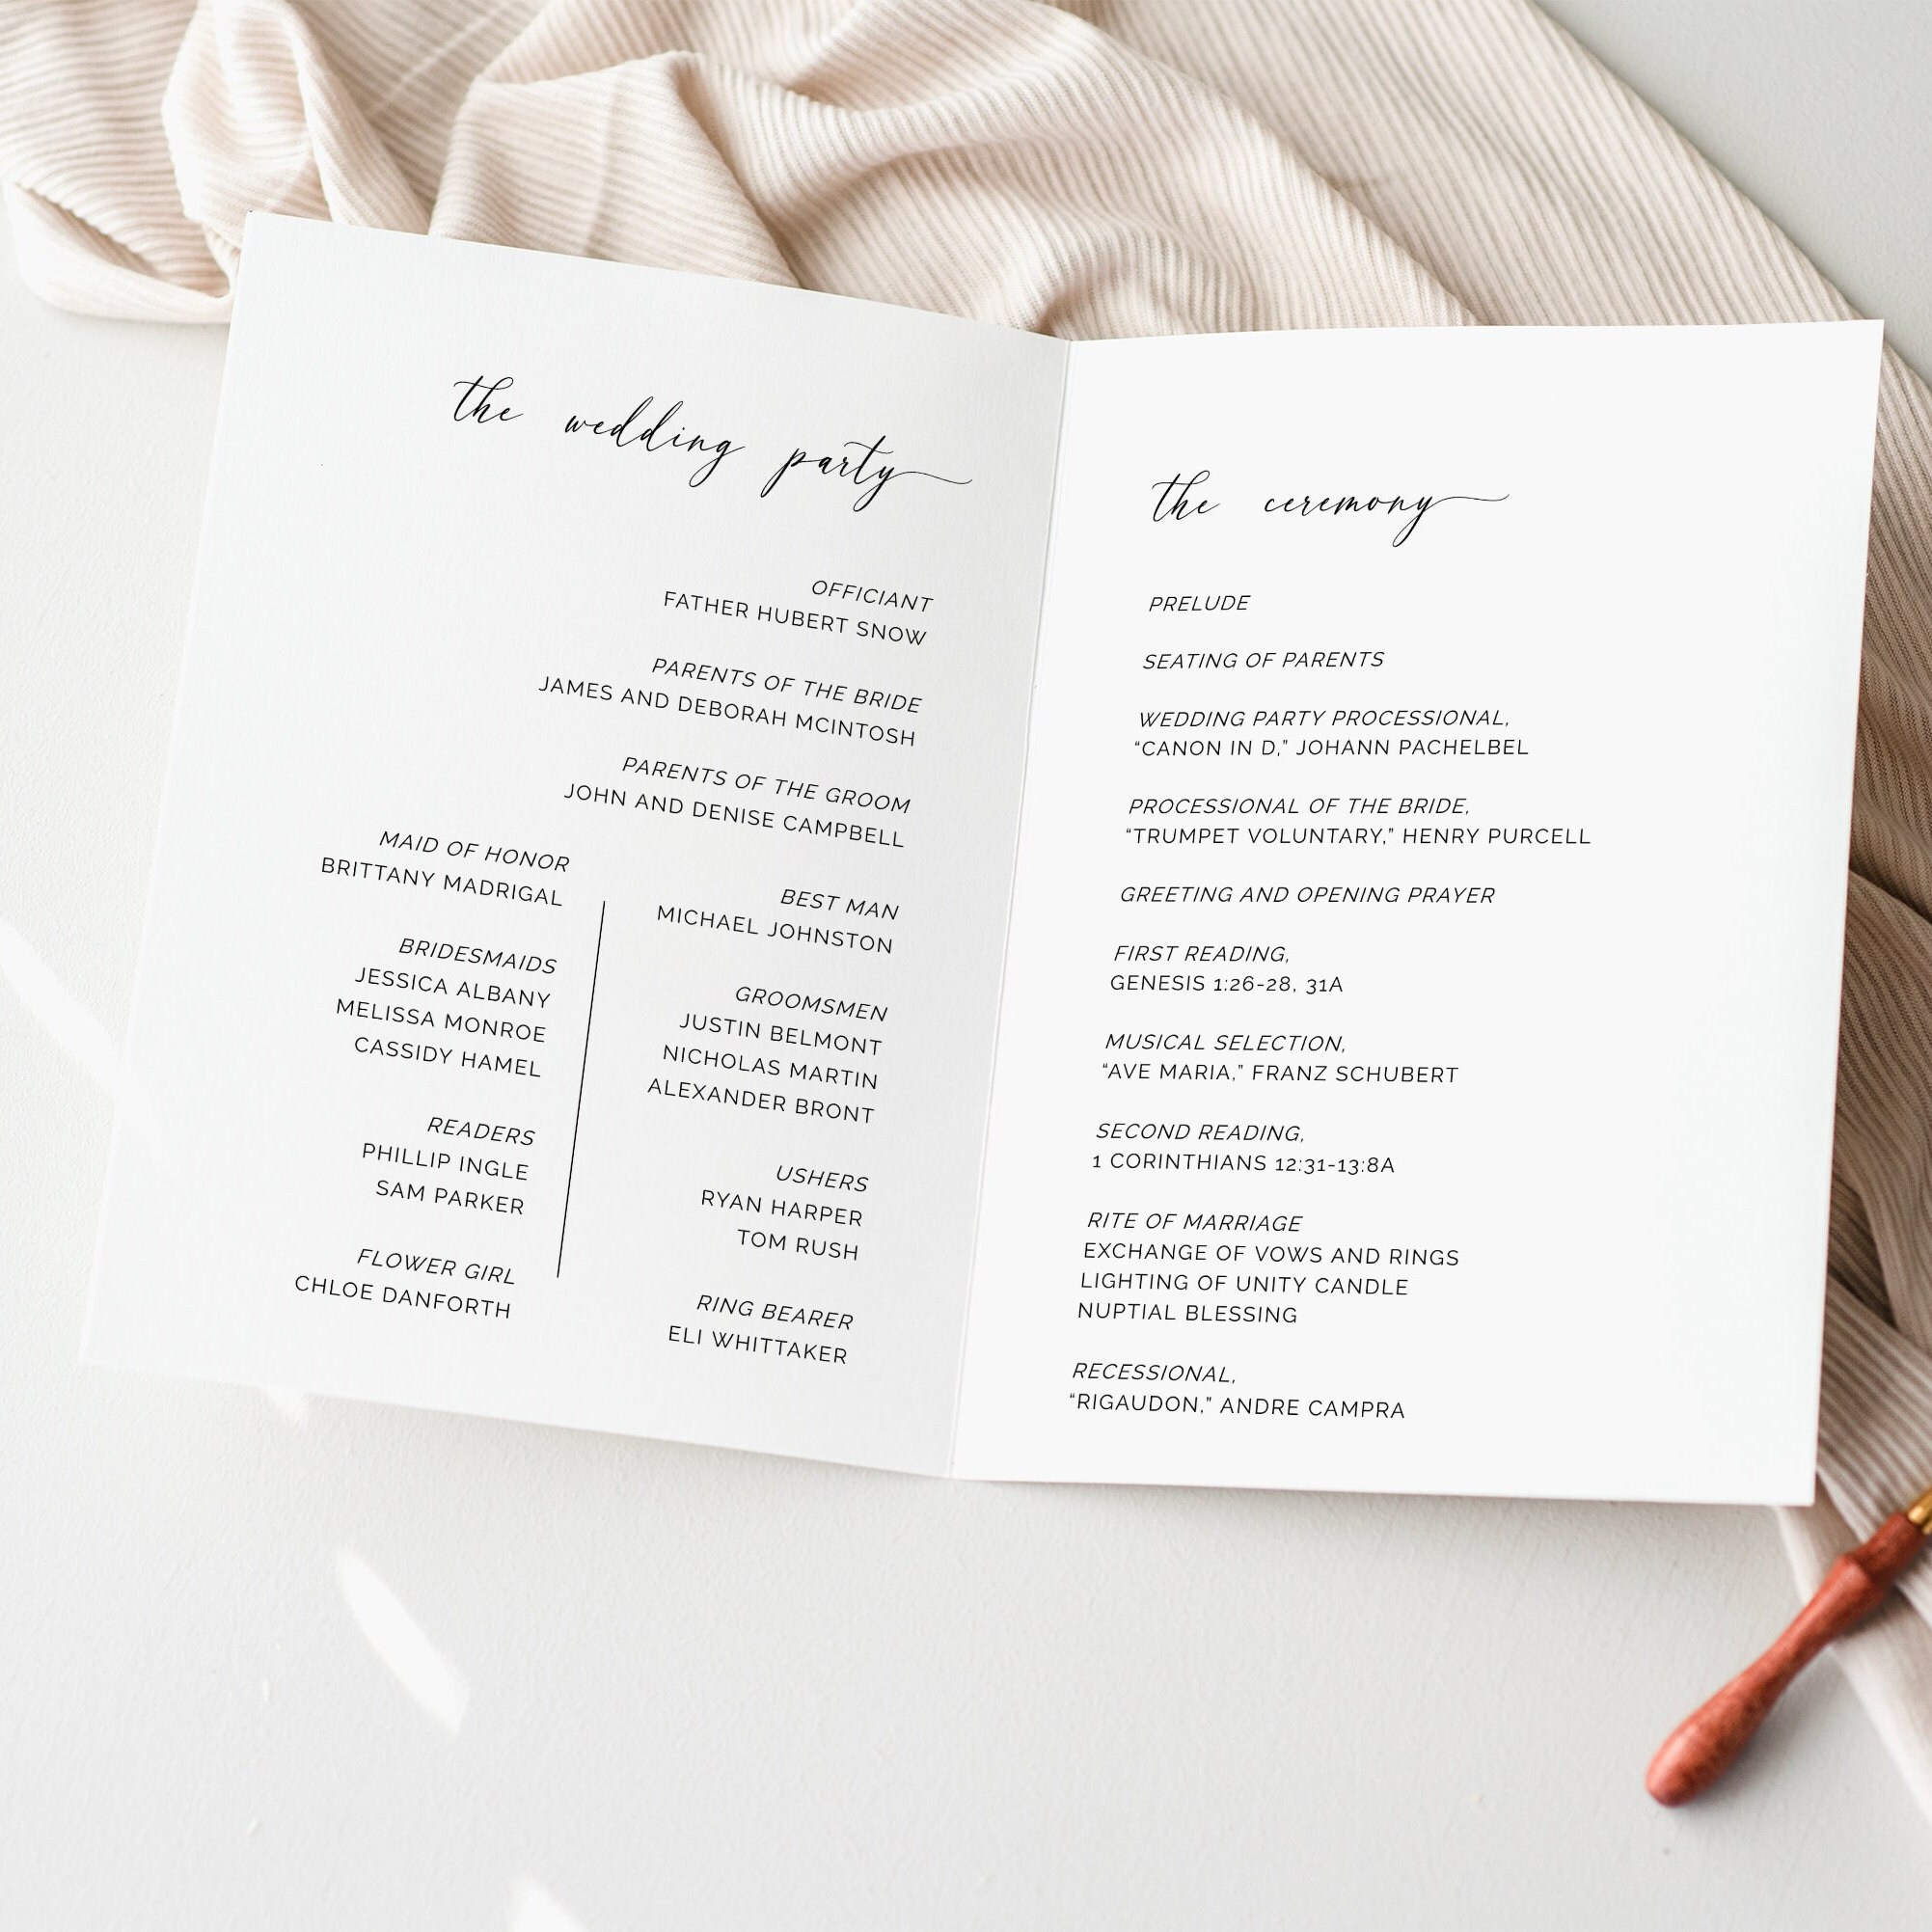 the wedding party
OFFICIANT
FATHER HUBERT SNOW
PARENTS OF THE BRIDE
JAMES AND DEBORAH MCINTOSH
PARENTS OF THE GROOM
JOHN AND DENISE CAMPBELL
MAID OF HONOR
BRITTANY MADRIGAL
BRIDESMAIDS
JESSICA ALBANY
MELISSA MONROE
CASSIDY HAMEL
READERS
PHILLIP INGLE
SAM PARKER
FLOWER GIRL
CHLOE DANFORTH
BEST MAN
MICHAEL JOHNSTON
GROOMSMEN
JUSTIN BELMONT
NICHOLAS MARTIN
ALEXANDER BRONT
USHERS
RYAN HARPER
TOM RUSH
RING BEARER
ELI WHITTAKER
the ceremony
PRELUDE
SEATING OF PARENTS
WEDDING PARTY PROCESSIONAL,
“CANON IN D,” JOHANN PACHELBEL
PROCESSIONAL OF THE BRIDE,
“TRUMPET VOLUNTARY,” HENRY PURCELL
GREETING AND OPENING PRAYER
FIRST READING,
GENESIS 1:26-28, 31A
MUSICAL SELECTION,
“AVE MARIA,” FRANZ SCHUBERT
SECOND READING,
1 CORINTHIANS 12:31-13:8A
RITE OF MARRIAGE
EXCHANGE OF VOWS AND RINGS
LIGHTING OF UNITY CANDLE
NUPTIAL BLESSING
RECESSIONAL,
“RIGAUDON,” ANDRE CAMPRA